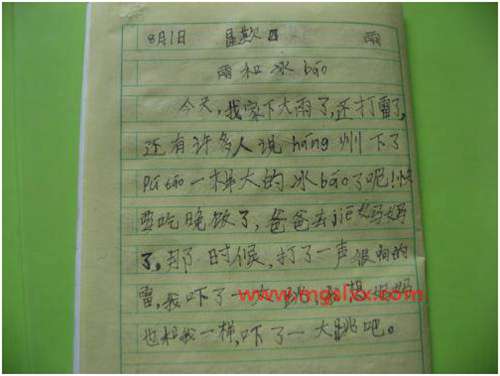 8月1日 星期日 雨
雨和冰báo
今天,我家下大雨了,还打雷了,
还有许多人说háng州下了
Pú táo一样大的冰báo了呢!快
要吃晚饭了,爸爸去jiē妈妈
了,那时候,打了一声很响的
雷,我吓了一大跳,我想妈妈
也和我一样,吓了一大跳吧。
www.mgslfx.com